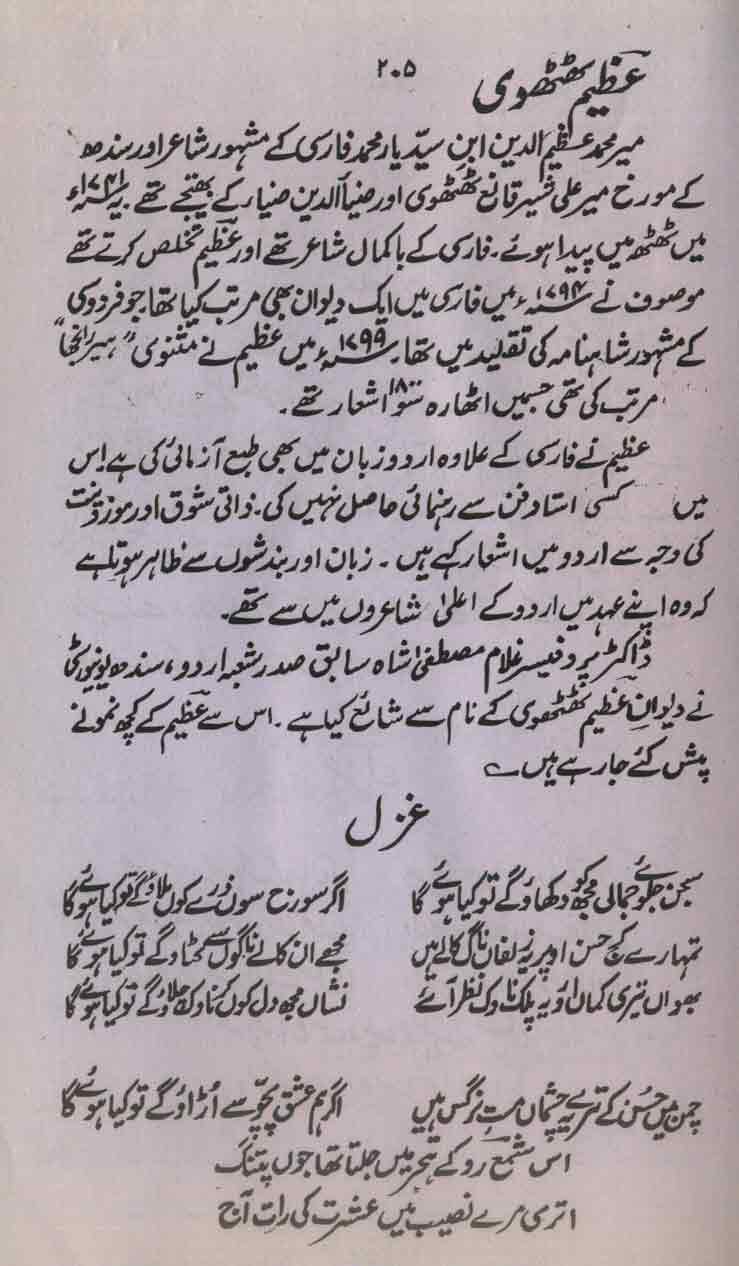 ۲۰۵
عظیم ٹھٹھوی
میر محمد عظیم الدین ابنِ سیّد یار محمد فارسی کے مشہور شاعر اور سندھ
کے مورخ میر علی شیر قانع ٹھٹھوی اور ضیاالدین ضیاء کے بھتیجے تھے۔ یہ ۱۷۴۹ء
میں ٹھٹھ میں پیدا ہوئے۔ فارسی کے باکمال شاعر تھے اور عظیم تخلص کرتے تھے
موصوف نے ۱۷۹۴ء میں فارسی میں ایک دیوان بھی مرتب کیا تھا جو فردوسی
کے مشہور شاہنامہ کی تقلید میں تھا۔ ۱۷۹۹ء میں عظیم نے مثنوی "ہیر رانجھا"
مرتب کی تھی جسمیں اٹھارہ سو ۱۸۰۰ اشعار تھے۔
عظیم نے فارسی کے علاوہ اردو زبان میں بھی طبع آزمائی کی ہے اس
میں کسی استاد فن سے رہنمائی حاصل نہیں کی۔ ذاتی شوق اور موزونیت
کی وجہ سے اردو میں اشعار کہے ہیں۔ زبان اور بندشوں سے ظاہر ہوتا ہے
کہ وہ اپنے عہد میں اردو کے اعلیٰ شاعروں میں سے تھے۔
ڈاکٹر پروفیسر غلام مصطفیٰ شاہ سابق صدر شعبہ اردو، سندھ یونیورسٹی
نے دیوانِ عظیم ٹھٹھوی کے نام سے شائع کیا ہے۔ اس سے عظیم کے کچھ نمونے
پیش کئے جا رہے ہیں
غزل
سجن جلوے جمالی مجھ کو دکھاؤ گے تو کیا ہوئے گا اگر سورج سوں ذرے کوں ملاؤ گے تو کیا ہوئے گا
تمہارے گنج حسن اوپر یہ زلفان ناگ کالے ہیں مجھے ان کالے ناگوں سے کٹاؤ گے تو کیا ہوئے گا
بھواں تیری کمان او یہ پلک ناوک نظر آئے نشاں مجھ دل کوں کر ناوک چلاؤ گے تو کیا ہوئے گا
چمن میں حُسن کے تیرے یہ چشماں مست نرگس ہیں اگر ہم عشق بچوں سے اُڑاؤ گے تو کیا ہوئے گا
اس شمع رو کے ہجر میں جلتا تھا جوں پتنگ
اتری مرے نصیب میں عشرت کی رات آج